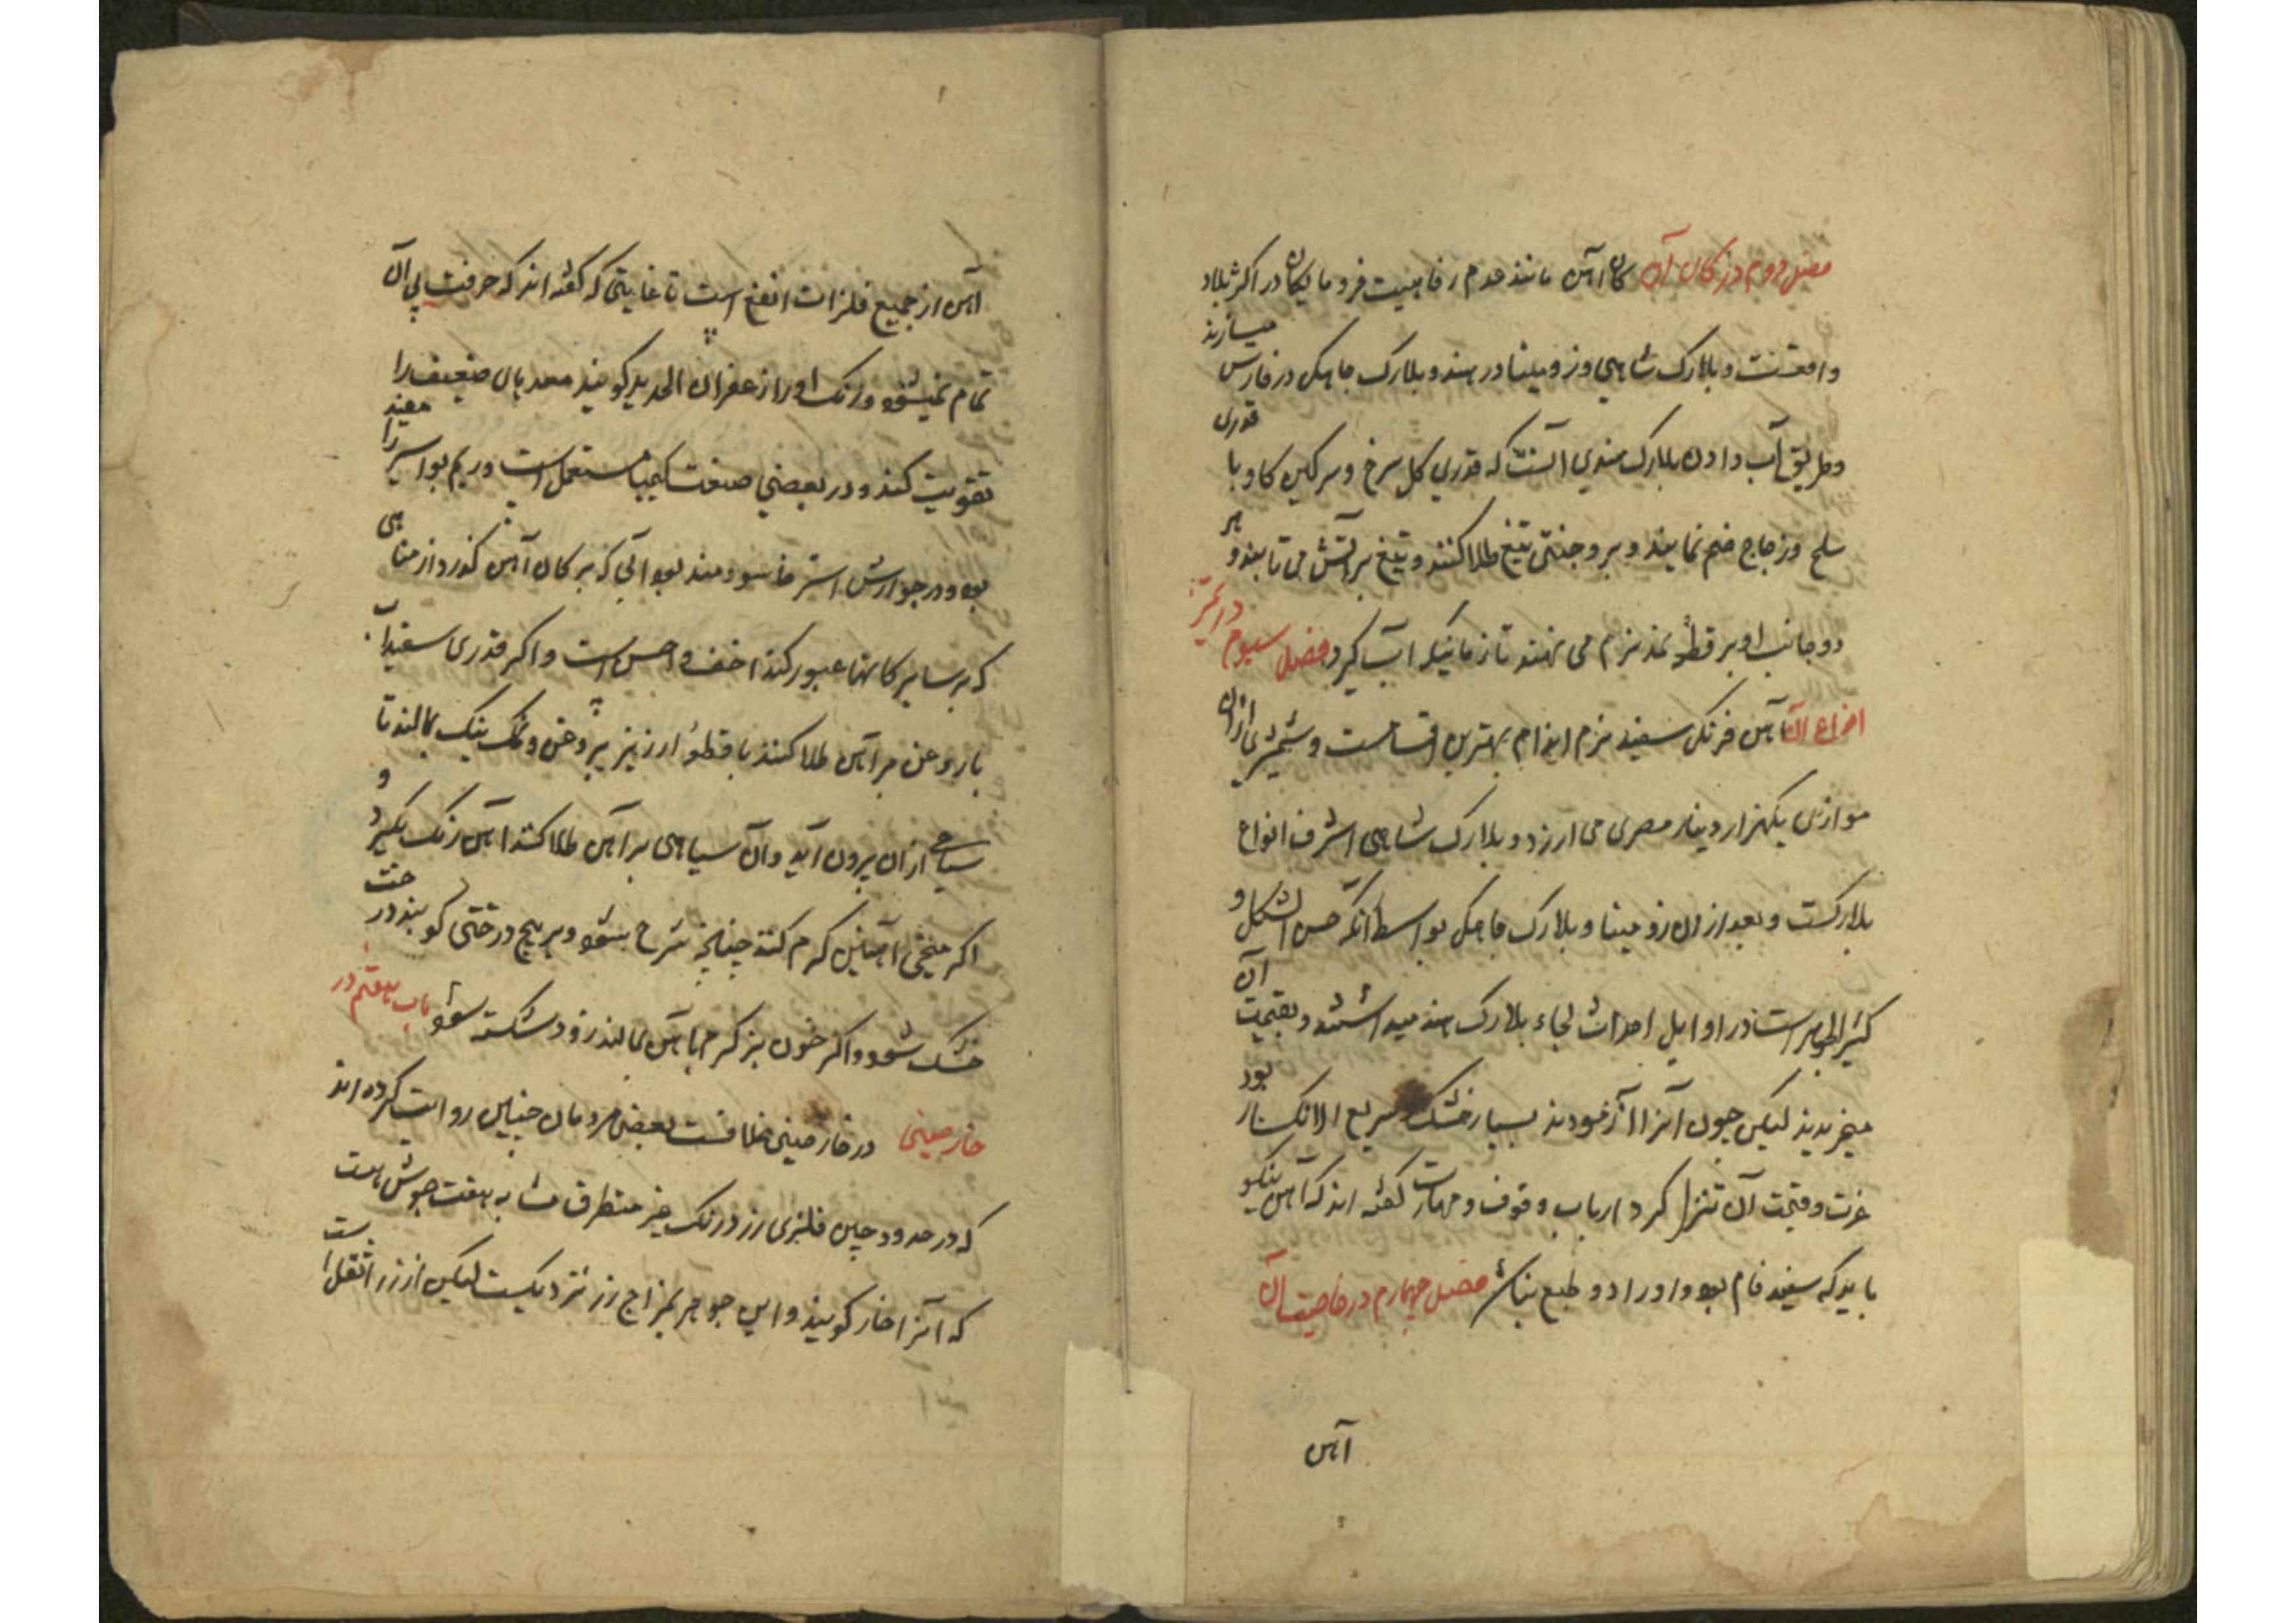 فصل دوم در کان آن کان آهن مانند عدم رفاهیت فرومایکان در اکثر بلاد
واقعست و بلارک شاهی وزومینا در هند و بلارک جاهکی در فارس میسازند
وطریق آب دادن بلارک هندی آنست که قدری کل سرخ وسرکین کاو با قدری
ملح وزجاج ضم نمایند و بر وجنتی تیغ طلا کنند و تیغ بر آتش می تابند و هر
دو جانب او بر قطعهٔ نمد نرم می نهند تا زمانیکه آب کیرد فصل سیوم در تمیز
انواع آن آهن فرنکی سفید نرم اندام بهترین اقسامست و شمشیری ازان
موازی یکهزار دینار مصری می ارزد و بلارک شاهی اشرف انواع
بلارکست و بعد از ان زومینا و بلارک جاهکی بواسطهٔ آنکه حسن الشکل و
کثیر الجواهر است در اوایل احداث بجاء بلارک هند میداشتند و بقیمت آن
میخریدند لیکن چون آنرا آزمودند بسیار خشک و سریع الانکسار بود
عزت و قیمت آن تنزل کرد ارباب وقوف و مهارت کفته اند که آهن نیکو
باید که سفید فام بود و او را دو طبع نباشد فصل چهارم در خاصیت آن
آهن
آهن از جمیع فلزات انفع است تا غایتی که کفته اند که حرفت بی آن
تمام نمیشود و زنک او را زعفران الحدید کویند معده بان ضعیف را
تقویت کند و در بعضی صنعت کیمیا مستعمل است و ریم بواسیر را مفید
بود و در جوارش استرخا سودمند بود آبی که بر کان آهن کذرد از میاهی
که بر سایر کانها عبور کند اخف و احسن است و اکر قدری سفیداب
با روغن بر آهن طلا کنند با قطعهٔ ارزیز بروغن و نمک نیک بمالند تا
سیاهی ازان برون آید و آن سیاهی بر آهن طلا کنند آهن زنک نکیرد و
اکر میخی آهنین کرم کنند چنانچه سرخ شود و بر بیخ درختی کوبند درخت
خشک شود و اکر خون بز کرم با آهن بمالند زود شکسته شود باب هفتم در
خارصینی در خارصینی خلافست بعضی مردمان چنین روایت کرده اند
که در حدود چین فلزی زرد رنک غیر متطرق مشابه بهفت جوش هست
که آنرا خار کویند و این جوهر بمزاج زر نزدیکست لیکن از زر اثقل است